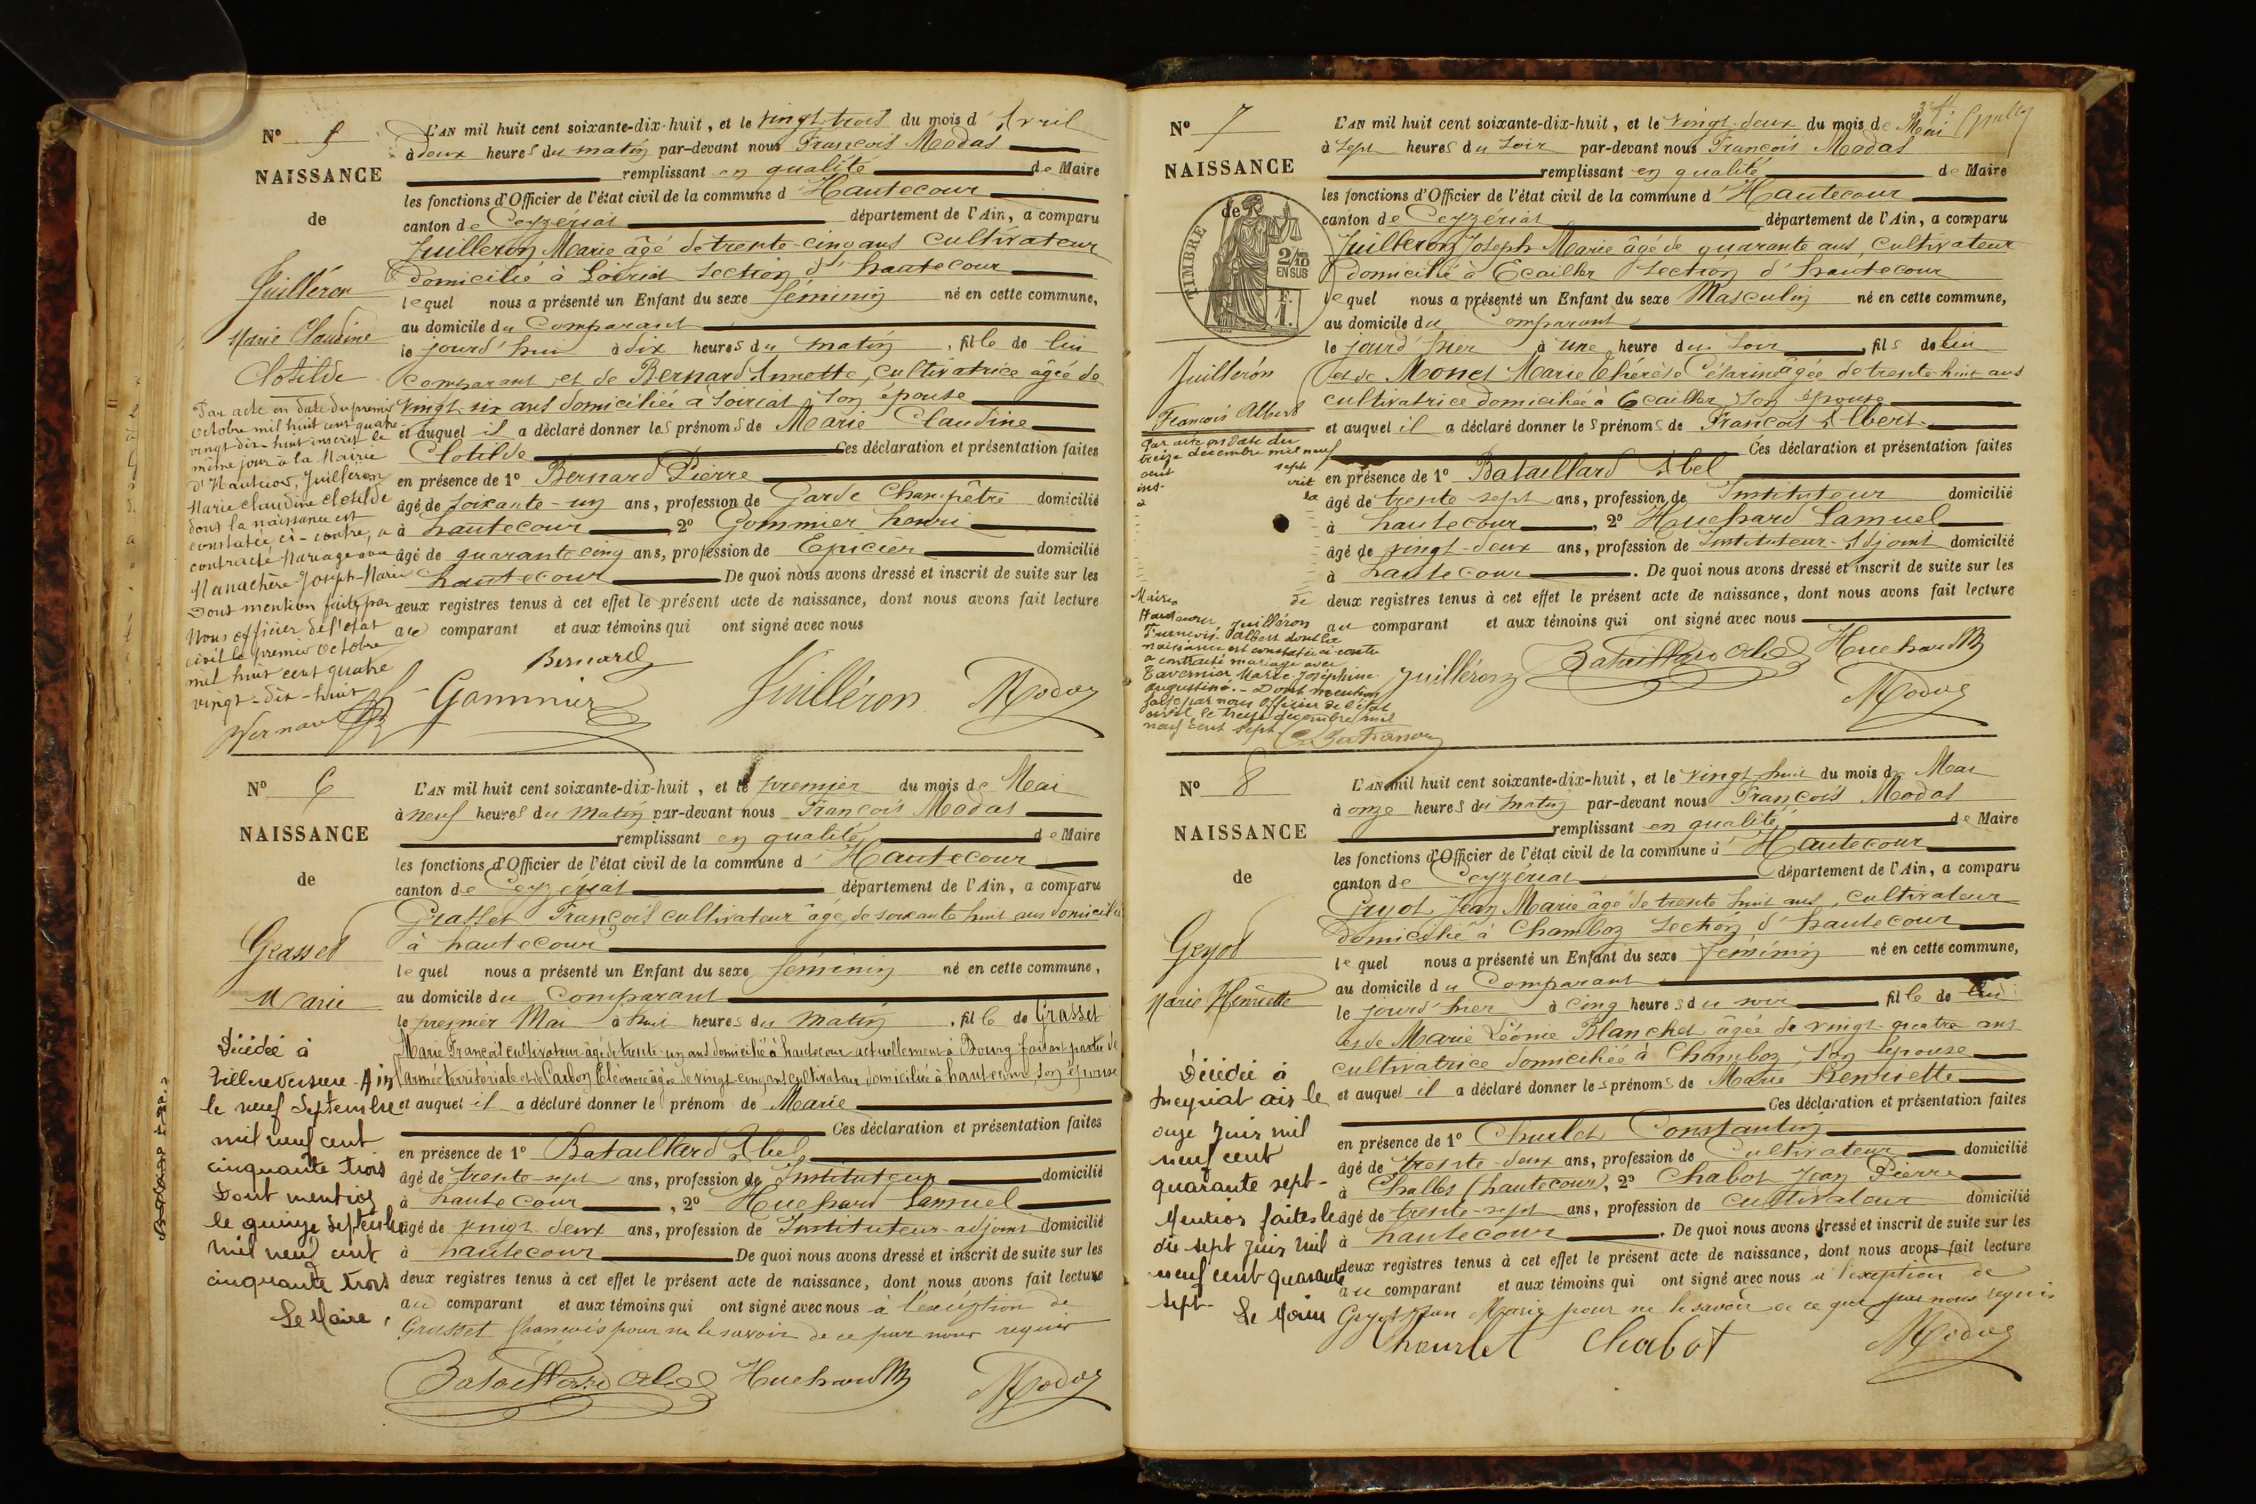 N° 5
NAISSANCE
de
Juilléron
Marie Claudine
Clotilde
Par acte en date du premier
octobre mil huit cent quatre
vingt-dix-huit inscrit le
même jour à la Mairie
d'Hautecour, Juilléron
Marie Claudine Clotilde
dont la naissance est
constatée ci-contre, a
contracté Mariage avec
Manachère Joseph-Marie
Dont mention faite par
Nous officier de l'état
civil le premier octobre
mil huit cent quatre
vingt-dix-huit
L'AN mil huit cent soixante-dix-huit, et le vingt-trois du mois d'Avril
à deux heures du matin par-devant nous François Modas
remplissant en qualité de Maire
les fonctions d'Officier de l'état civil de la commune d'Hautecour
canton de Ceyzériat département de l'Ain, a comparu
Juilleron Marie âgé de trente-cinq ans cultivateur
domicilié à Soiriat section d'hautecour
lequel nous a présenté un Enfant du sexe féminin né en cette commune,
au domicile du Comparant
le jourd'hui à dix heures du matin, fille de lui
comparant et de Bernard Annette, cultivatrice âgée de
vingt-six ans domiciliée à Soiriat, son épouse
et auquel il a déclaré donner les prénoms de Marie Claudine
Clotilde Ces déclaration et présentation faites
en présence de 1° Bernard Pierre
âgé de soixante-un ans, profession de Garde Champêtre domicilié
à hautecour 2° Gommier henri
âgé de quarante cinq ans, profession de Epicier domicilié
à hautecour De quoi nous avons dressé et inscrit de suite sur les
deux registres tenus à cet effet le présent acte de naissance, dont nous avons fait lecture
au comparant et aux témoins qui ont signé avec nous
Bernard
Gommier Juilléron Modas
N° 6
NAISSANCE
de
Grasset
Marie
Décédée à
Villereversure - Ain
le neuf Septembre
mil neuf cent
cinquante trois
Dont mention
le quinze Septembre
mil neuf cent
cinquante trois
Le Maire,
L'AN mil huit cent soixante-dix-huit, et le premier du mois de Mai
à neuf heures du matin par-devant nous François Modas
remplissant en qualité de Maire
les fonctions d'Officier de l'état civil de la commune d'Hautecour
canton de Ceyzériat département de l'Ain, a comparu
Grasset François cultivateur âgé de soixante huit ans domicilié
à hautecour
lequel nous a présenté un Enfant du sexe féminin né en cette commune,
au domicile du Comparant
le premier Mai à huit heures du matin, fille de Grasset
Marie François cultivateur âgé de trente-un ans domicilié à hautecour actuellement à Bourg faisant partie de
l'armée territoriale et de Carbon Eléonore âgée de vingt-cinq ans cultivateur domiciliée à hautecour, son épouse
et auquel il a déclaré donner le prénom de Marie
Ces déclaration et présentation faites
en présence de 1° Bataillard Abel
âgé de trente-sept ans, profession de Instituteur domicilié
à hautecour, 2° Huchard Samuel
âgé de vingt-deux ans, profession de Instituteur-adjoint domicilié
à hautecour De quoi nous avons dressé et inscrit de suite sur les
deux registres tenus à cet effet le présent acte de naissance, dont nous avons fait lecture
au comparant et aux témoins qui ont signé avec nous à l'exception de
Grasset françois pour ne le savoir de ce par nous requis
Bataillard Abel Huchard Modas
N° 7
NAISSANCE
de
TIMBRE
2/10
EN SUS
F.
1.
Juilléron
François Albert
Par acte en date du
treize décembre mil neuf
cent sept
ins- crit
à la
Mairie de
Hautecour, Juilléron
François-Albert dont la
naissance est constatée ci-contre
a contracté mariage avec
Tavernier Marie Joséphine
Augustine. - Dont mention
faite par nous officier de l'état
civil le treize décembre mil
neuf cent sept
L'AN mil huit cent soixante-dix-huit, et le vingt-deux du mois de Mai
à sept heures du soir par-devant nous François Modas
remplissant en qualité de Maire
les fonctions d'Officier de l'état civil de la commune d'Hautecour
canton de Ceyzériat département de l'Ain, a comparu
Juilleron Joseph Marie âgé de quarante ans, Cultivateur
domicilié à Ecailler section d'hautecour
lequel nous a présenté un Enfant du sexe Masculin né en cette commune,
au domicile du Comparant
le jourd'hier à une heure du soir, fils de lui
et de Monet Marie Thérèse Césarine âgée de trente-huit ans
cultivatrice domiciliée à Ecailler, son épouse
et auquel il a déclaré donner les prénoms de François Albert.
Ces déclaration et présentation faites
en présence de 1° Bataillard Abel
âgé de trente-sept ans, profession de Instituteur domicilié
à hautecour, 2° Huchard Samuel
âgé de vingt-deux ans, profession de Instituteur-Adjoint domicilié
à hautecour. De quoi nous avons dressé et inscrit de suite sur les
deux registres tenus à cet effet le présent acte de naissance, dont nous avons fait lecture
au comparant et aux témoins qui ont signé avec nous
Juilléron Bataillard Abel Huchard
Modas
N° 8
NAISSANCE
de
Geyot
Marie Henriette
Décédée à
Meyriat ain le
onze Juin mil
neuf cent
quarante sept-
Mention faites le
dix sept Juin mil
neuf cent quarante
sept-
Le Maire
L'AN mil huit cent soixante-dix-huit, et le vingt-huit du mois de Mai
à onze heures du matin par-devant nous François Modas
remplissant en qualité de Maire
les fonctions d'Officier de l'état civil de la commune d'Hautecour
canton de Ceyzériat département de l'Ain, a comparu
Guyot, Jean Marie âgé de trente huit ans, cultivateur
domicilié à Chamboz section d'hautecour
lequel nous a présenté un Enfant du sexe féminin né en cette commune,
au domicile du Comparant
le jourd'hier à cinq heures du soir fille de lui
et de Marie Léonie Blanchet âgée de vingt-quatre ans
cultivatrice domiciliée à Chamboz, son épouse
et auquel il a déclaré donner les prénoms de Marie henriette
Ces déclaration et présentation faites
en présence de 1° Chuelet Constantin
âgé de trente-deux ans, profession de Cultivateur domicilié
à Challes (hautecour), 2° Chabot Jean Pierre
âgé de trente-sept ans, profession de cultivateur domicilié
à hautecour. De quoi nous avons dressé et inscrit de suite sur les
deux registres tenus à cet effet le présent acte de naissance, dont nous avons fait lecture
au comparant et aux témoins qui ont signé avec nous à l'exception de
Geyot Jean Marie pour ne le savoir de ce que par nous requis
Cheurlet Chabot Modas